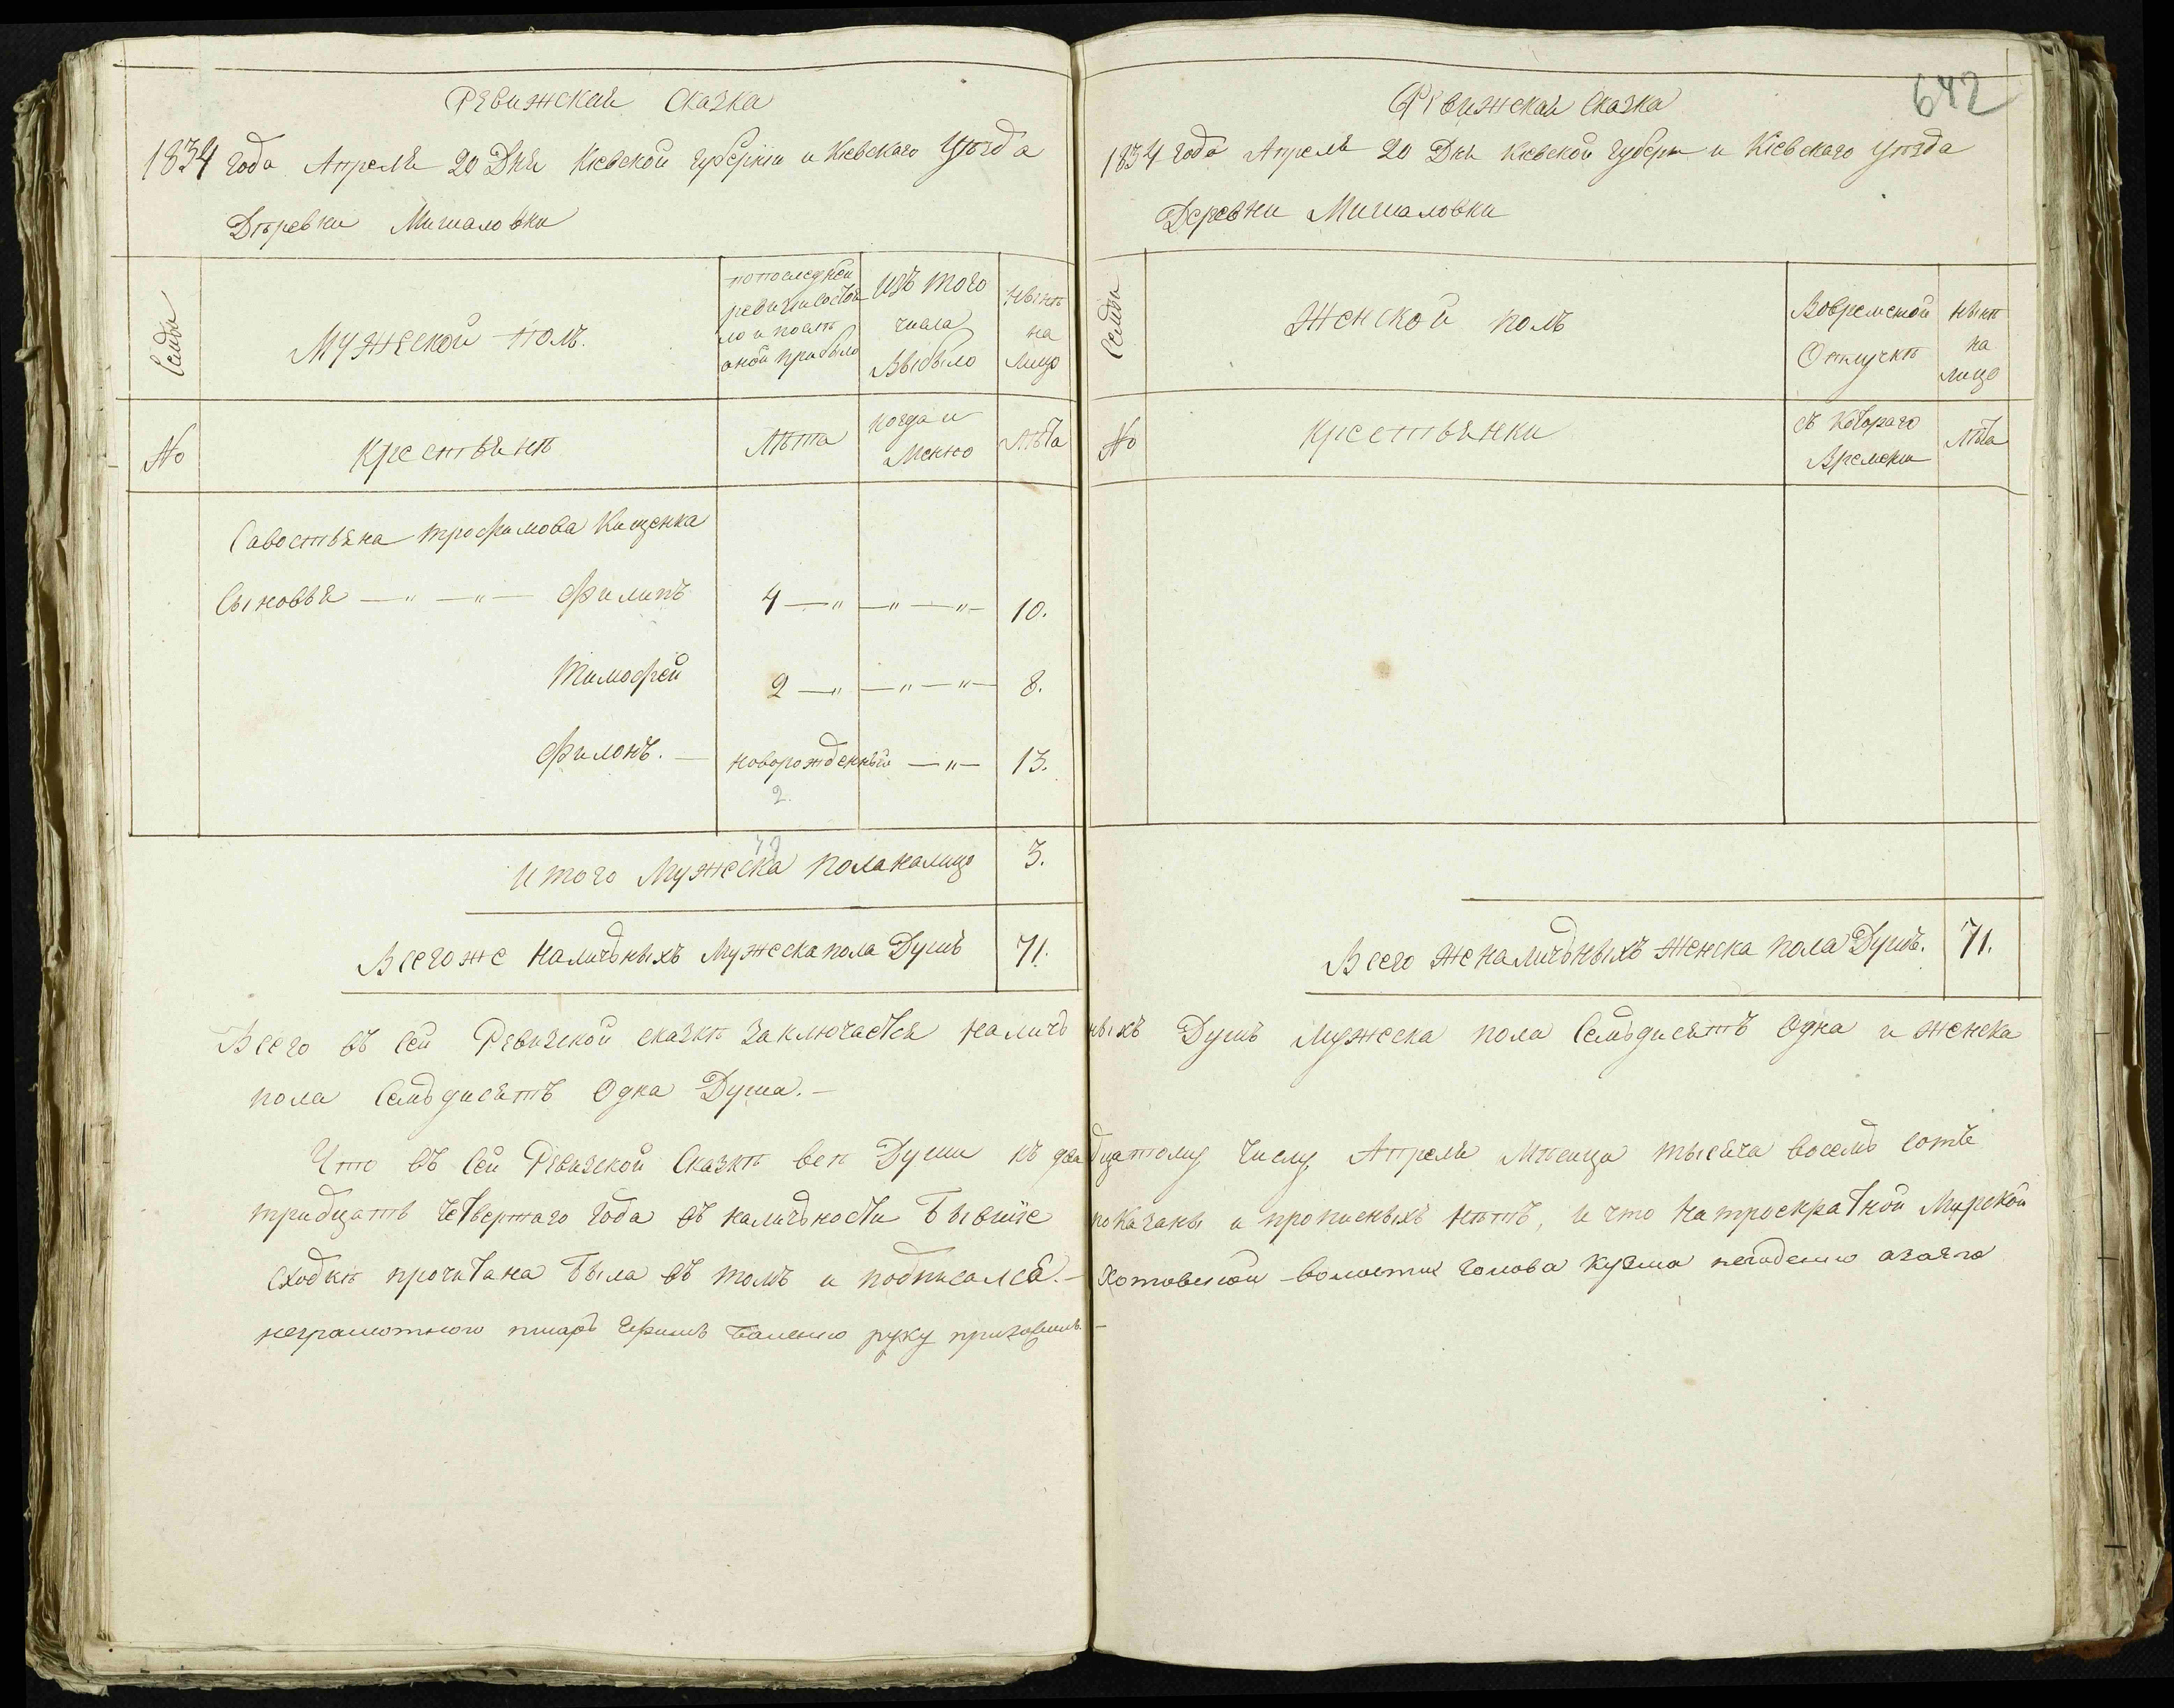 Ревижская Сказка
1834 года Апреля 20 Дня Кіевской губерніи и Кіевскаго Уѣзда
Дѣревни Мишаловки
Семьи
Мужеской полъ.
попоследней
ревизіи состоя
ло и послѣ
оной прибыло
Изъ того
числа
Выбыло
Нынѣ
на
Лицо
№
Крестьянѣ
Лѣта
Когда и
Менно
Лѣта
Савостьяна трофимова Кищенка
Сыновья — " — " — Филипъ 4 — " — " — " — 10.
Тимофей 2 — " — " — " — 8.
Филонъ. — новорожденный — " — 13.
2.
Итого Мужеска пола налицо 3.
Всего же Наличъныхъ Мужеска пола Душъ 71.
642
Ревижская Сказка
1834 года Апреля 20 Дня Кіевской Губерн и Кіевскаго уѣзда
Деревни Мишаловки
Семьи
Женской полъ
Вовременой
Отлучкѣ
Нынѣ
на
лицо
№
Крестьянки
съ Котораго
Времени
Лѣта
Всего же наличъныхъ Женска пола Душъ. 71.
Всего въ сей Ревизской сказкѣ заключается Наличъныхъ Душъ Мужеска пола Семьдисятъ Одна и женска
пола Семьдисятъ Одна Душа. —
Что въ Сей Ревизской Сказкѣ всѣ Души къ двадцатому числу Апреля Мѣсица тысяча восемь сотъ
тридцать четвертаго года въ наличъности бывшіе показаны и прописныхъ нѣтъ, и что на троекратной Мирской
сходкѣ прочитана была въ томъ и подписался. — Хотовской волости голова Кузма
неграмотного писаръ руку приложилъ. —